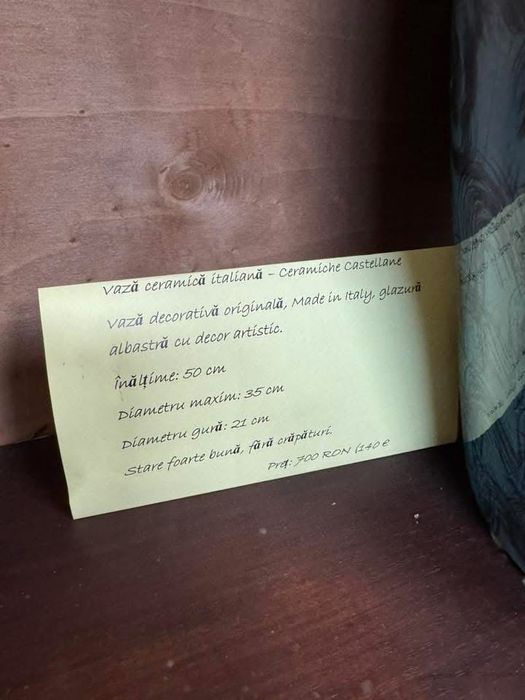 Vază ceramică italiană – Ceramiche Castellane
Vază decorativă originală, Made in Italy, glazură
albastră cu decor artistic.
Înălțime: 50 cm
Diametru maxim: 35 cm
Diametru gură: 21 cm
Stare foarte bună, fără crăpături.
Preț: 700 RON (140 €